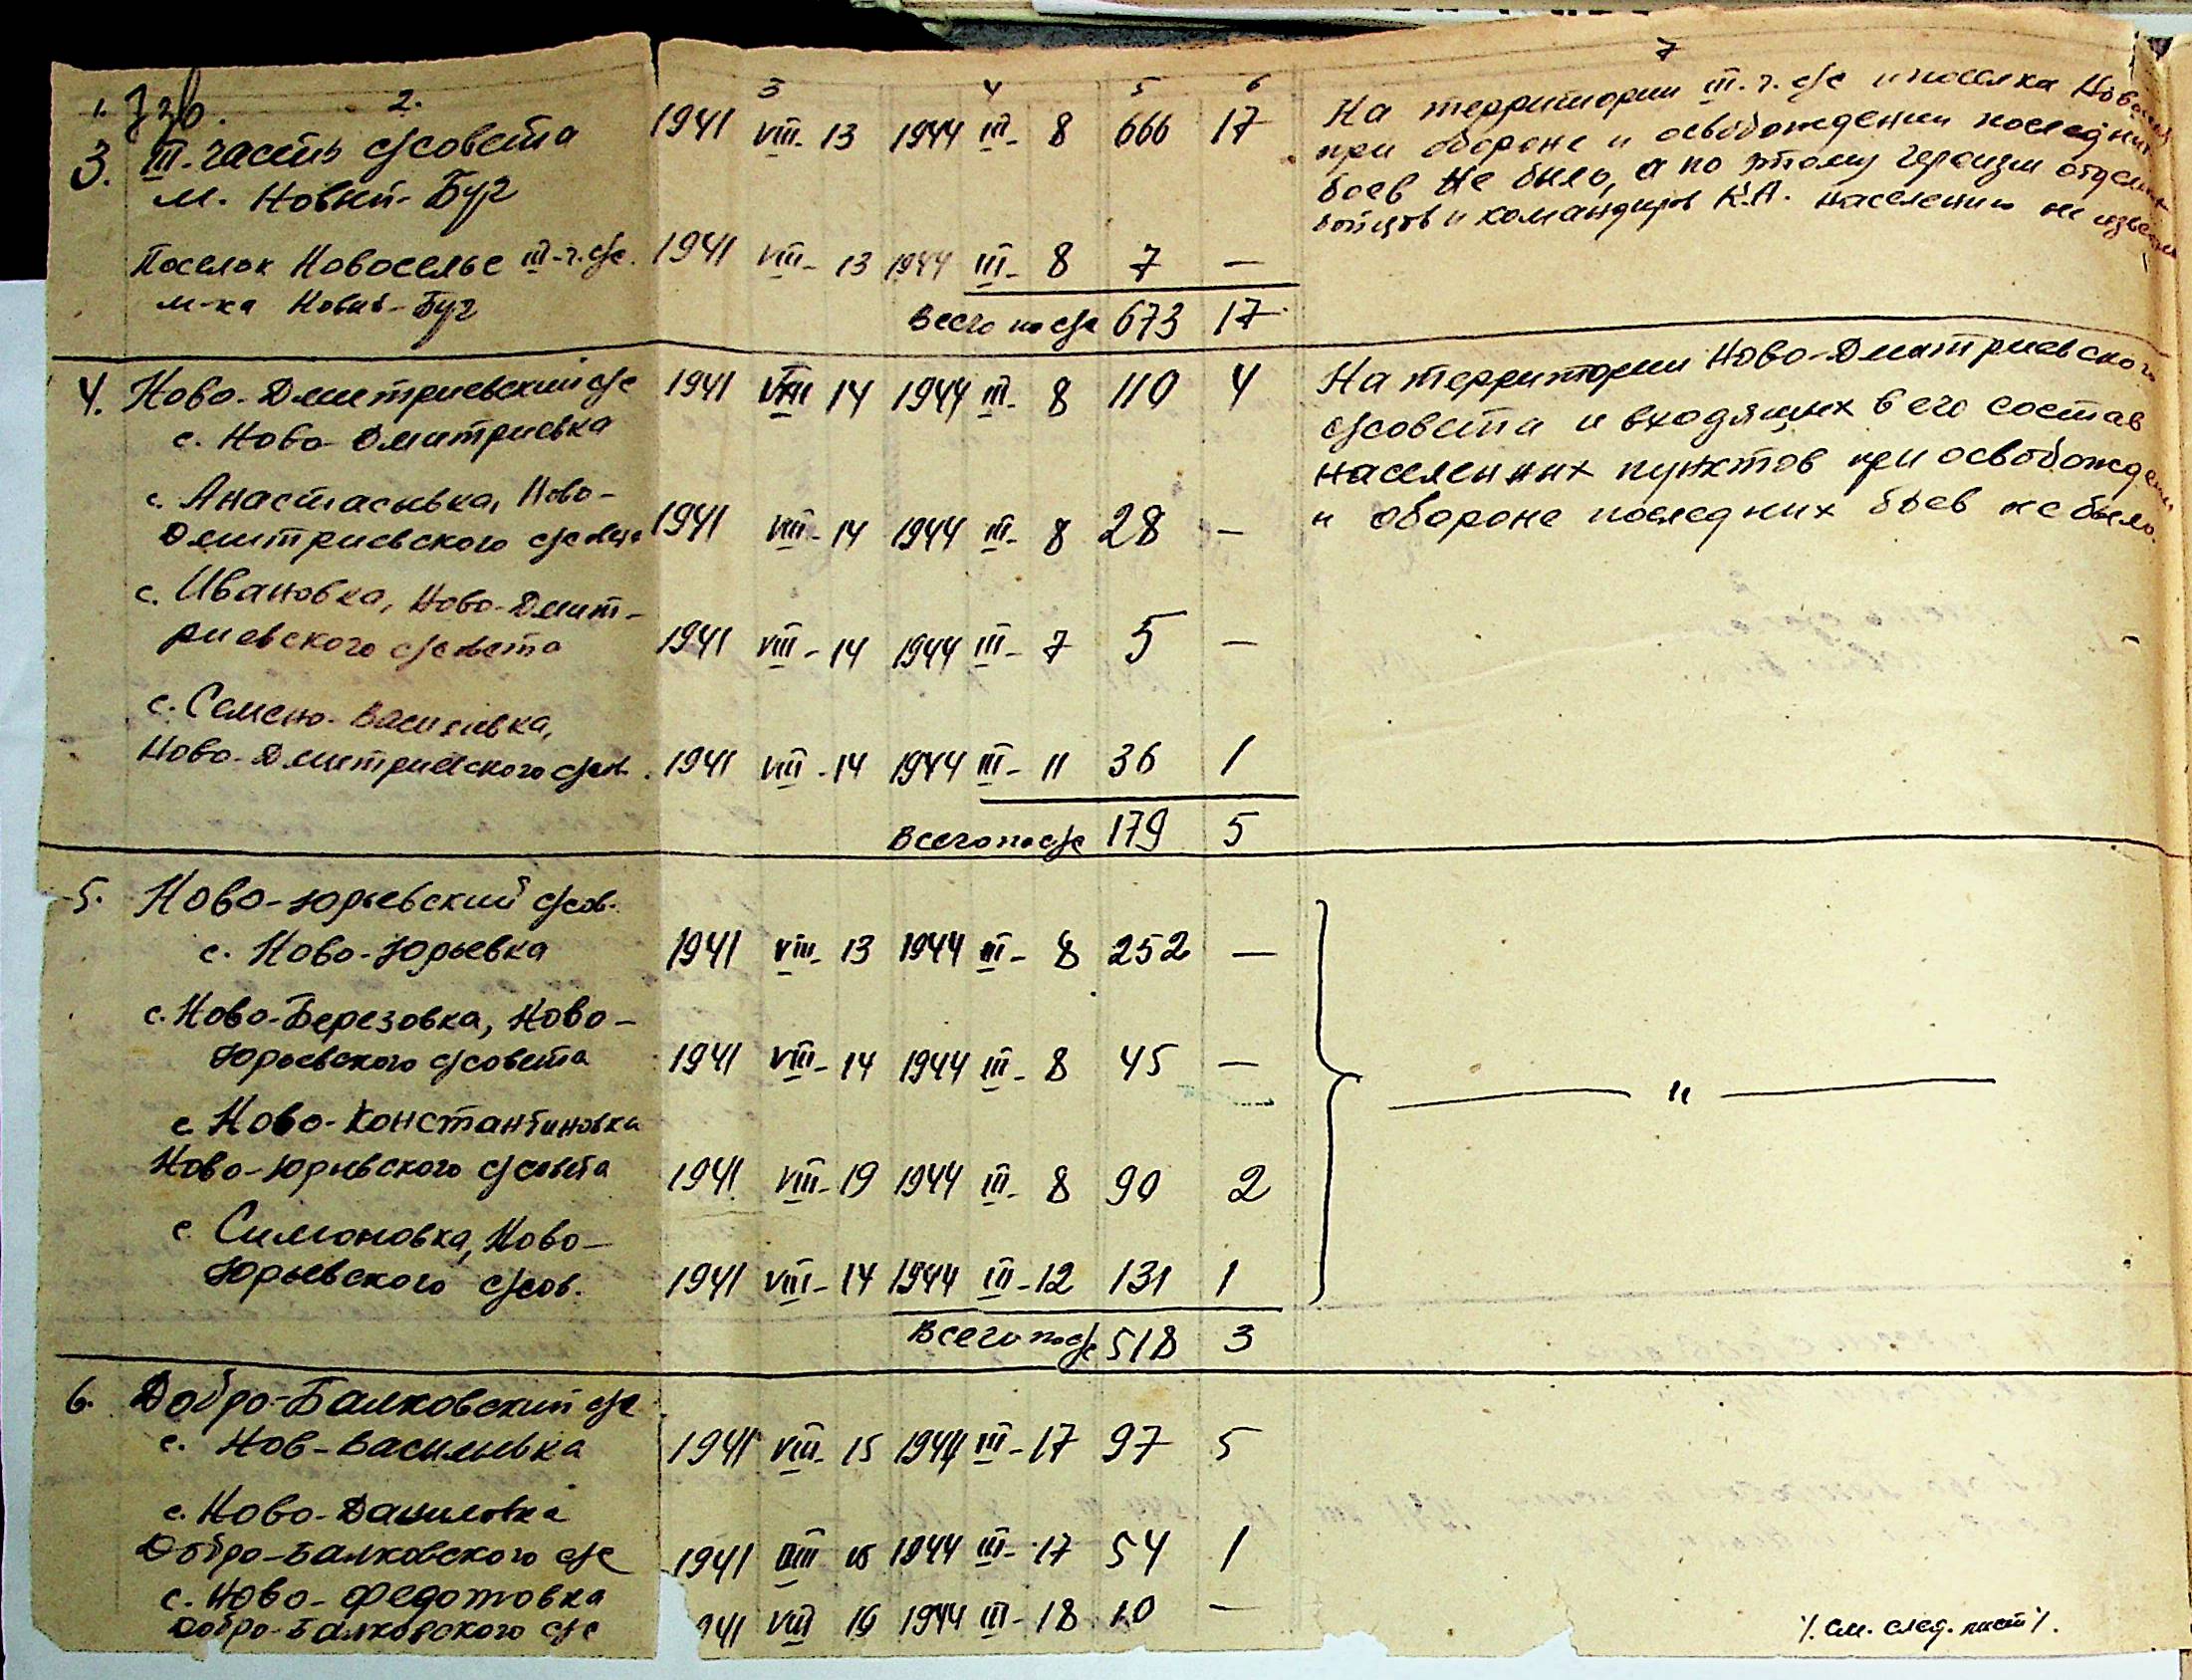 1. 2. 3 4 5 6 7
3. III-часть с/совета 1941 VIII-13 1944 III-8 666 17
м. Новый-Буг
Поселок Новоселье III-ч.с/с. 1941 VIII-13 1944 III-8 7 —
м-ка Новый-Буг
Всего по с/с 673 17
На территории III.ч. с/с и поселка
при обороне и освобождении последних
боев не было, а по этому героизм
бойцов и командиров К.А. населению не
4. Ново-Дмитриевский с/с 1941 VIII 14 1944 III-8 110 4
с. Ново-Дмитриевка
с. Анастасьвка, Ново-
Дмитриевского с/совета 1941 VIII-14 1944 III-8 28 —
с. Ивановка, Ново-Дмит-
риевского с/совета 1941 VIII-14 1944 III-7 5 —
с. Семено-Василивка,
Ново-Дмитриевского с/сов. 1941 VIII-14 1944 III-11 36 1
Всего по с/с 179 5
На территории Ново-Дмитриевского
с/совета и входящих в его состав
населенних пунктов при
и обороне последних боев не было.
5. Ново-Юрьевский с/сов.
с. Ново-Юрьевка 1941 VIII-13 1944 III-8 252 —
с. Ново-Березовка, Ново-
Юрьевского с/совета 1941 VIII-14 1944 III-8 45 —
с Ново-Константиновка
Ново-Юрьевского с/совета 1941 VIII-19 1944 III-8 90 2
с. Симоновка, Ново-
Юрьевского с/сов. 1941 VIII-14 1944 III-12 131 1
Всего по с/с 518 3
— " —
6. Добро-Балковский с/с
с. Нов-Васильевка 1941 VIII-15 1944 III-17 97 5
с. Ново-Даниловка
Добро-Балковского с/с 1941 VIII 15 1944 III-17 54 1
с. Ново-Федотовка
Добро-Балковского с/с 941 VIII 16 1944 III-18 10 —
/. см. след. лист /.